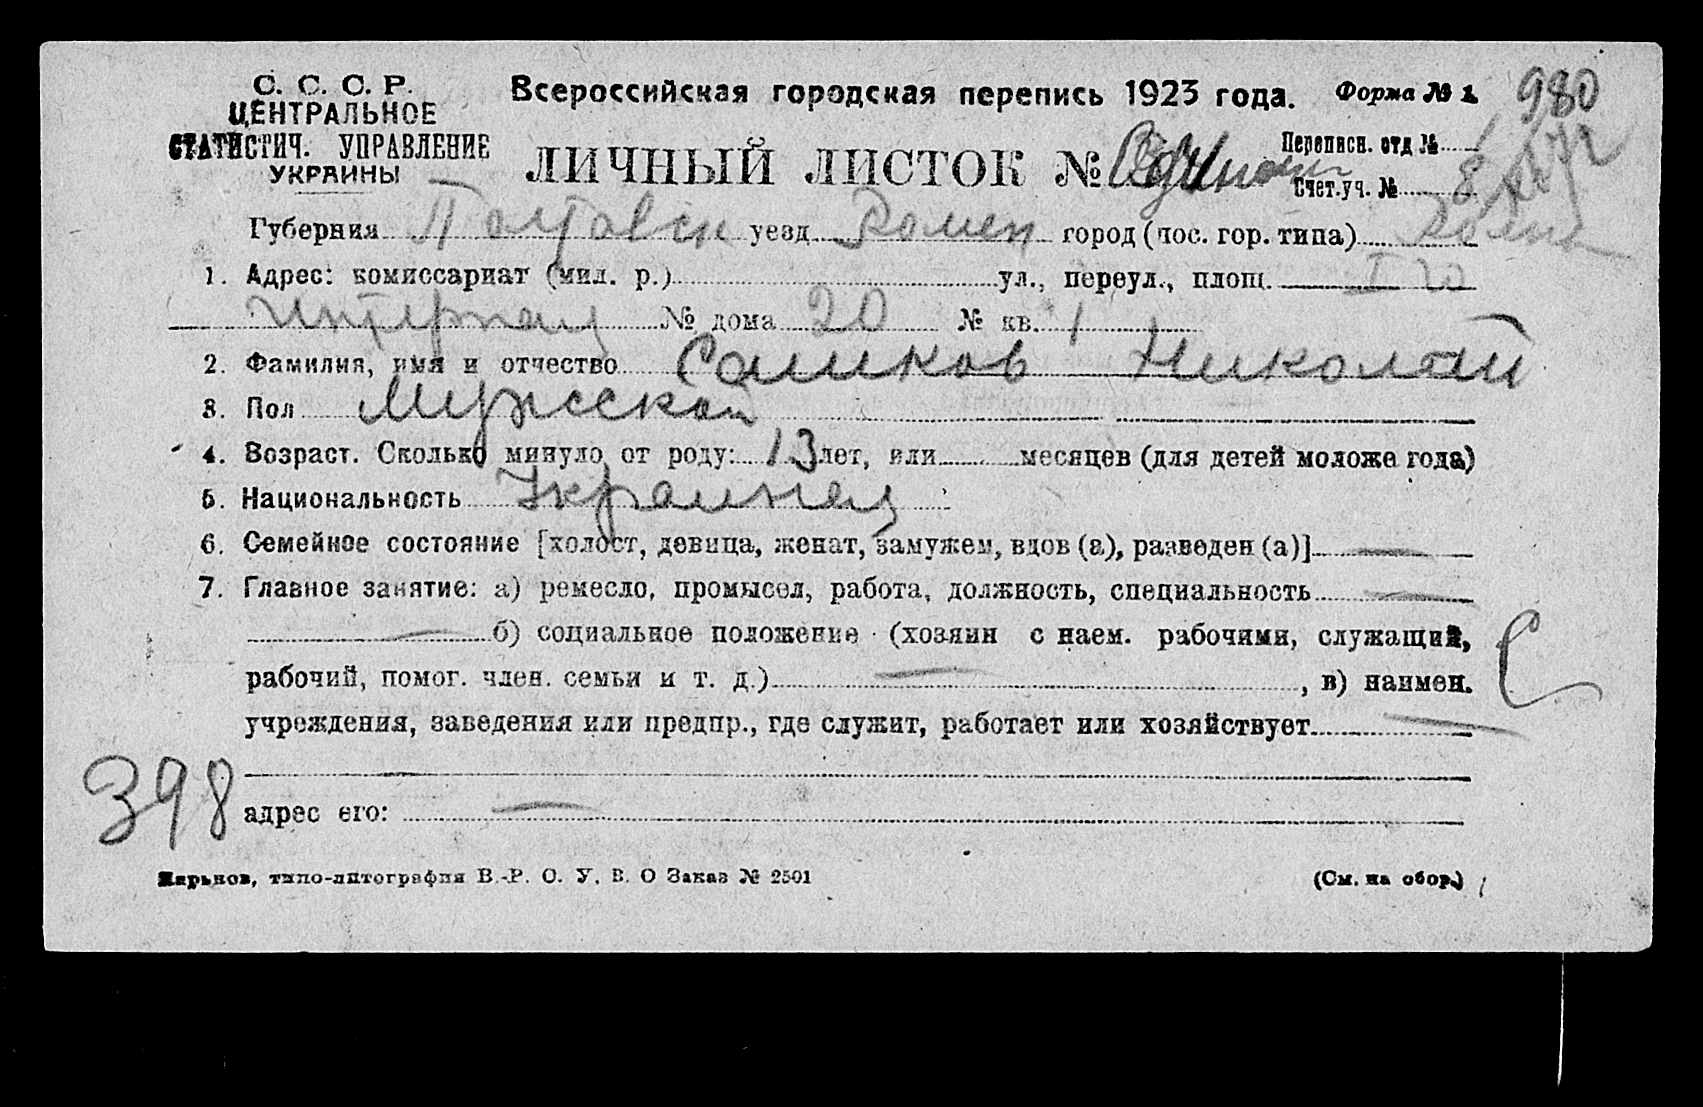 С. С. С. Р.
ЦЕНТРАЛЬНОЕ
СТАТИСТИЧ. УПРАВЛЕНИЕ
УКРАИНЫ
Всероссийская городская перепись 1923 года. Форма № 1. 980
ЛИЧНЫЙ ЛИСТОК №
Переписн. отд №
Счет.уч. № 8
Губерния Полтавск уезд Ромен город (пос. гор. типа)
1. Адрес: комиссариат (мил. р.) ул., переул., площ.
№ дома 20 № кв. 1
2. Фамилия, имя и отчество Сашков Николай
3. Пол Мужской
4. Возраст. Сколько минуло от роду: 13 лет, или месяцев (для детей моложе года)
5. Национальность Украинец
6. Семейное состояние [холост, девица, женат, замужем, вдов (а), разведен (а)] —
7. Главное занятие: а) ремесло, промысел, работа, должность, специальность —
— б) социальное положение (хозяин с наем. рабочими, служащий,
рабочий, помог. член. семьи и т. д.) — , в) наимен.
учреждения, заведения или предпр., где служит, работает или хозяйствует —
398
адрес его: —
Харьков, типо-литография В.-Р. О. У. В. О Заказ № 2501
(См. на обор.)